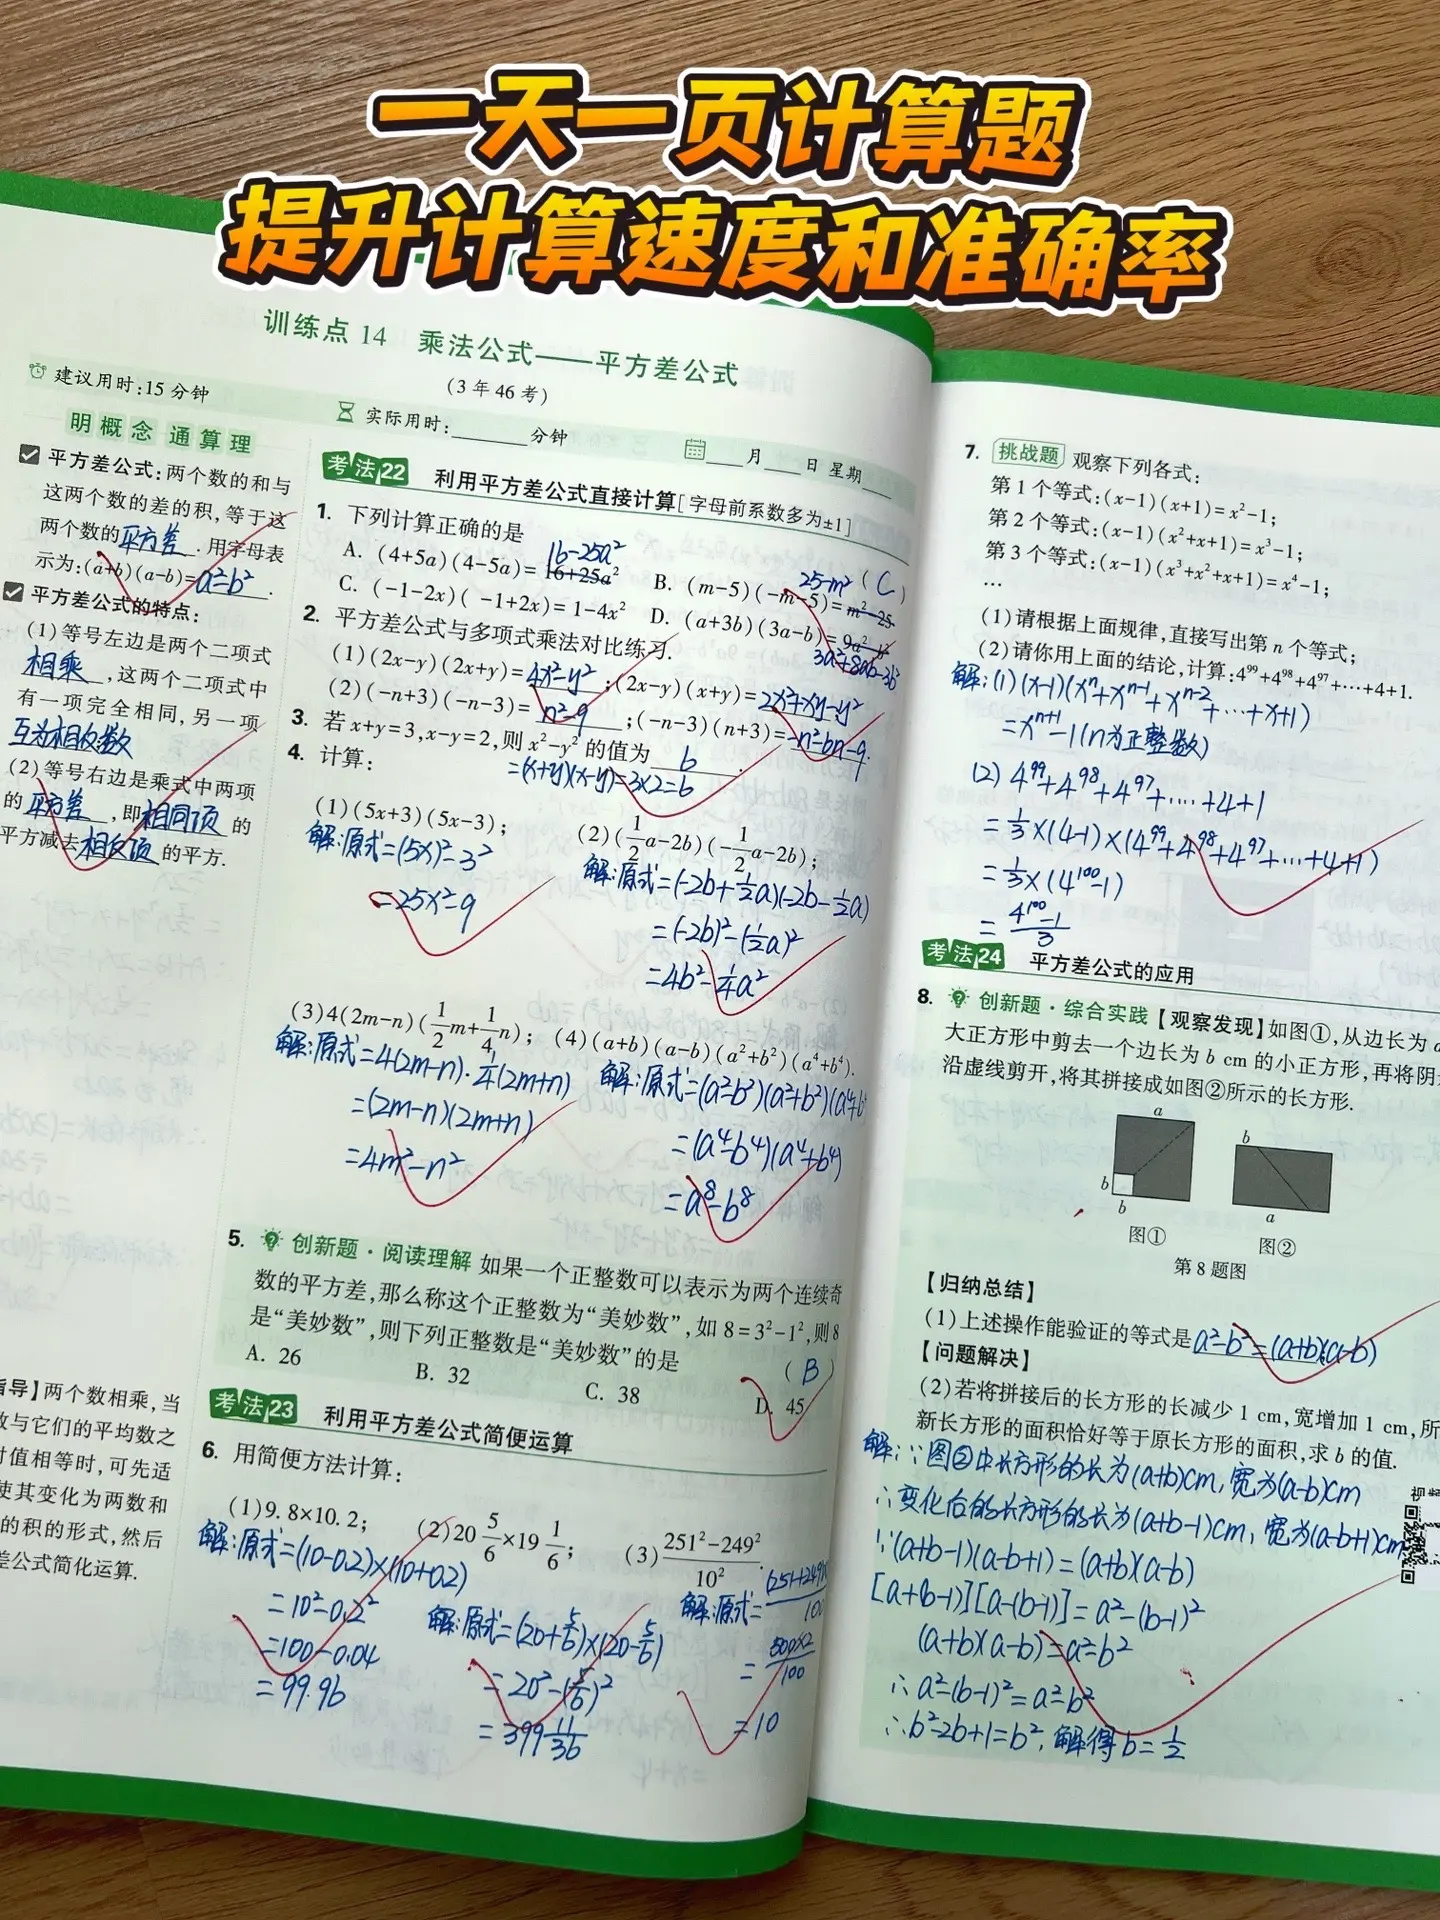 一天一页计算题
提升计算速度和准确率
训练点 14 乘法公式——平方差公式
(3 年 46 考)
建议用时:15 分钟
实际用时:______分钟
___月___日 星期___
明概念 通算理
平方差公式:两个数的和与
这两个数的差的积,等于这
两个数的平方差.用字母表
示为:(a+b)(a-b)=a²-b².
平方差公式的特点:
(1)等号左边是两个二项式
相乘,这两个二项式中
有一项完全相同,另一项
互为相反数
(2)等号右边是乘式中两项
的平方差,即相同项的
平方减去相反项的平方.
指导】两个数相乘,当
数与它们的平均数之
对值相等时,可先适
使其变化为两数和
的积的形式,然后
差公式简化运算.
考法22 利用平方差公式直接计算[字母前系数多为±1]
1. 下列计算正确的是 (C)
16-25a²
A. (4+5a)(4-5a)=16+25a²
25-m²
B. (m-5)(-m-5)=m²-25
C. (-1-2x)(-1+2x)=1-4x²
D. (a+3b)(3a-b)=9a²-b²
3a²+8ab-3b²
2. 平方差公式与多项式乘法对比练习.
(1)(2x-y)(2x+y)=4x²-y²;(2x-y)(x+y)=2x²+xy-y²
(2)(-n+3)(-n-3)=n²-9;(-n-3)(n+3)=-n²-6n-9.
3. 若 x+y=3,x-y=2,则 x²-y² 的值为 6.
=(x+y)(x-y)=3×2=6
4. 计算:
(1)(5x+3)(5x-3);
解:原式=(5x)²-3²
=25x²-9
(2)(1/2a-2b)(-1/2a-2b);
解:原式=(-2b+1/2a)(-2b-1/2a)
=(-2b)²-(1/2a)²
=4b²-1/4a²
(3)4(2m-n)(1/2m+1/4n);
解:原式=4(2m-n)·1/4(2m+n)
=(2m-n)(2m+n)
=4m²-n²
(4)(a+b)(a-b)(a²+b²)(a⁴+b⁴).
解:原式=(a²-b²)(a²+b²)(a⁴+b⁴
=(a⁴-b⁴)(a⁴+b⁴)
=a⁸-b⁸
5. 创新题·阅读理解 如果一个正整数可以表示为两个连续奇
数的平方差,那么称这个正整数为“美妙数”,如 8=3²-1²,则 8
是“美妙数”,则下列正整数是“美妙数”的是 (B)
A. 26 B. 32 C. 38 D. 45
考法23 利用平方差公式简便运算
6. 用简便方法计算:
(1)9.8×10.2;
解:原式=(10-0.2)×(10+0.2)
=10²-0.2²
=100-0.04
=99.96
(2)20 5/6×19 1/6;
解:原式=(20+5/6)×(20-5/6)
=20²-(5/6)²
=399 11/36
(3)(251²-249²)/10².
解:原式=(251+249)×/100
=500×2/100
=10
7. 挑战题 观察下列各式:
第 1 个等式:(x-1)(x+1)=x²-1;
第 2 个等式:(x-1)(x²+x+1)=x³-1;
第 3 个等式:(x-1)(x³+x²+x+1)=x⁴-1;
…
(1)请根据上面规律,直接写出第 n 个等式;
(2)请你用上面的结论,计算:4⁹⁹+4⁹⁸+4⁹⁷+…+4+1.
解:(1)(x-1)(xⁿ+xⁿ⁻¹+xⁿ⁻²+…+x+1)
=xⁿ⁺¹-1(n为正整数)
(2)4⁹⁹+4⁹⁸+4⁹⁷+…+4+1
=1/3×(4-1)×(4⁹⁹+4⁹⁸+4⁹⁷+…+4+1)
=1/3×(4¹⁰⁰-1)
=(4¹⁰⁰-1)/3
考法24 平方差公式的应用
8. 创新题·综合实践【观察发现】如图①,从边长为 a
大正方形中剪去一个边长为 b cm 的小正方形,再将阴
沿虚线剪开,将其拼接成如图②所示的长方形.
a
b
b
图①
b
a
图②
第 8 题图
【归纳总结】
(1)上述操作能验证的等式是a²-b²=(a+b)(a-b)
【问题解决】
(2)若将拼接后的长方形的长减少 1 cm,宽增加 1 cm,所
新长方形的面积恰好等于原长方形的面积,求 b 的值.
解:∵图②中长方形的长为(a+b)cm,宽为(a-b)cm
∴变化后的长方形的长为(a+b-1)cm,宽为(a-b+1)cm
∵(a+b-1)(a-b+1)=(a+b)(a-b)
[a+(b-1)][a-(b-1)]=a²-(b-1)²
(a+b)(a-b)=a²-b²
∴a²-(b-1)²=a²-b²
∴b²-2b+1=b²,解得b=1/2
视频